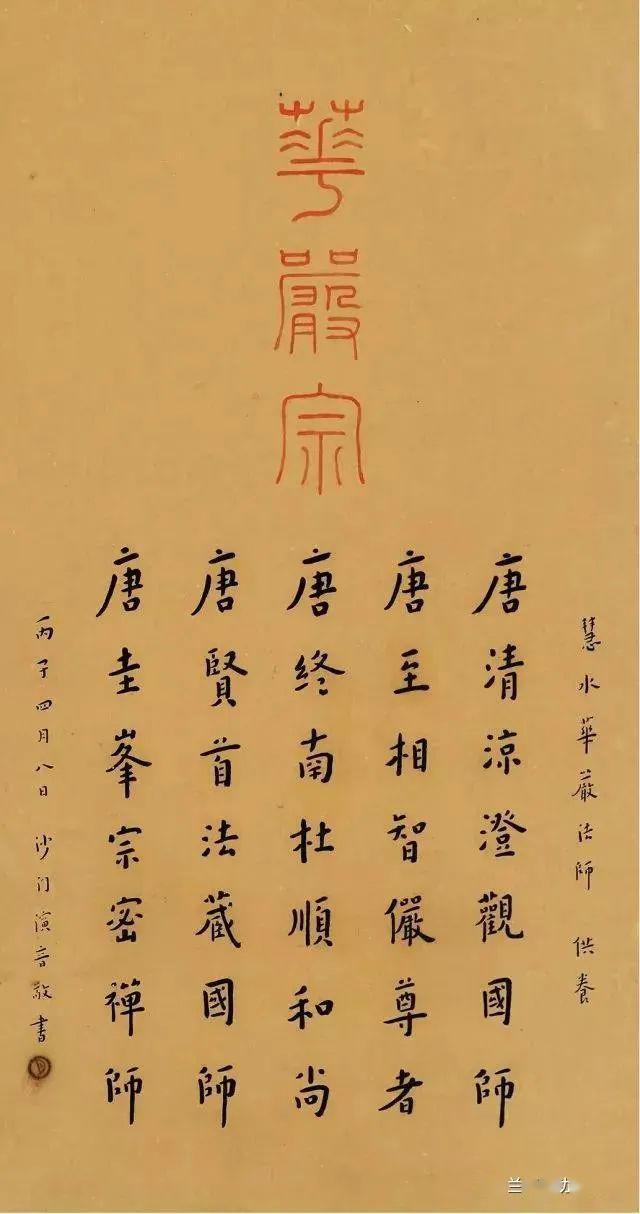 華嚴宗
慧水華嚴法師 供養
唐清涼澄觀國師
唐至相智儼尊者
唐終南杜順和尚
唐賢首法藏國師
唐圭峯宗密禪師
丙子四月八日 沙門演音敬書
兰